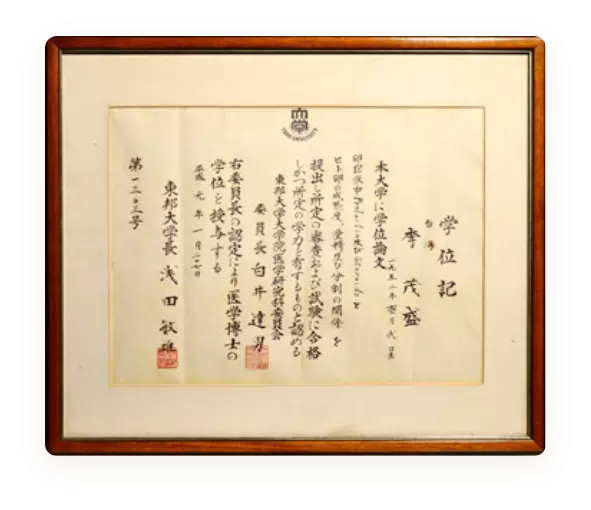 学位記
台湾
李茂盛
本大学に学位論文
卵胞液中Prolactin及びSteroidsと
ヒト卵の成熟度、受精及び分割の関係 を
提出し所定の審査および試験に合格
しかつ所定の学力を有するものと認める
東邦大学大学院医学研究科委員会
委員長 白井達男
右委員長の認定により医学博士の
学位を授与する
平成元年一月二十七日
東邦大学長 浅田敏雄
TOHO UNIVERSITY